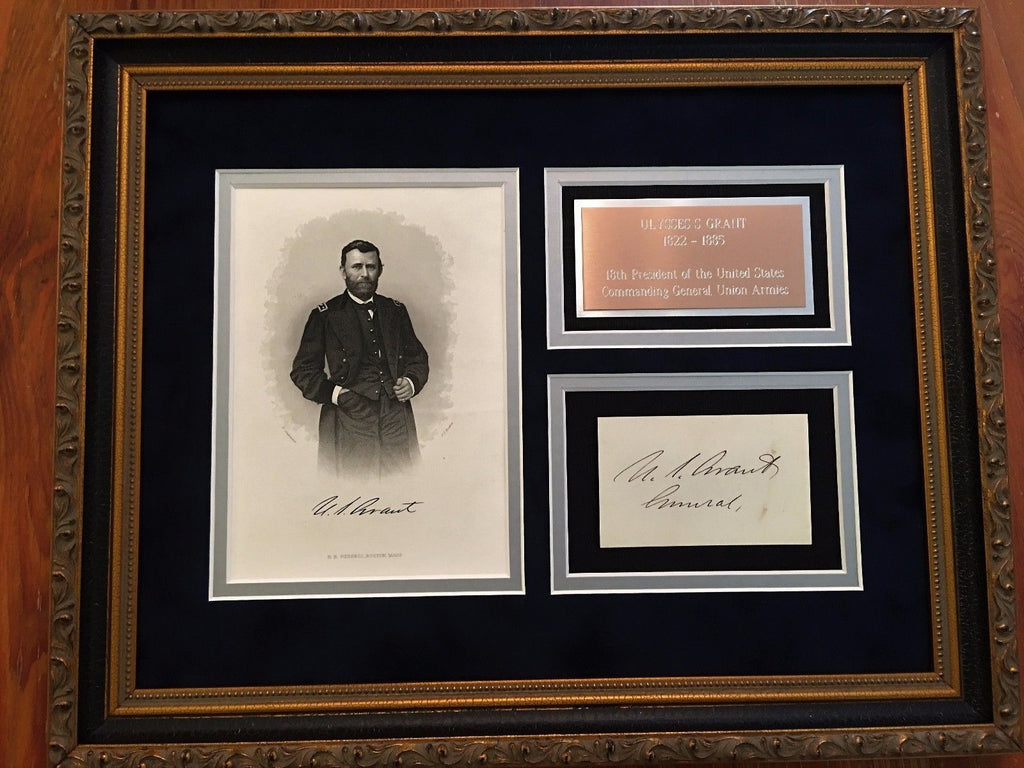 U.S. Grant
ULYSSES S GRANT
1822 – 1885
18th President of the United States
Commanding General, Union Armies
U.S. Grant
General,